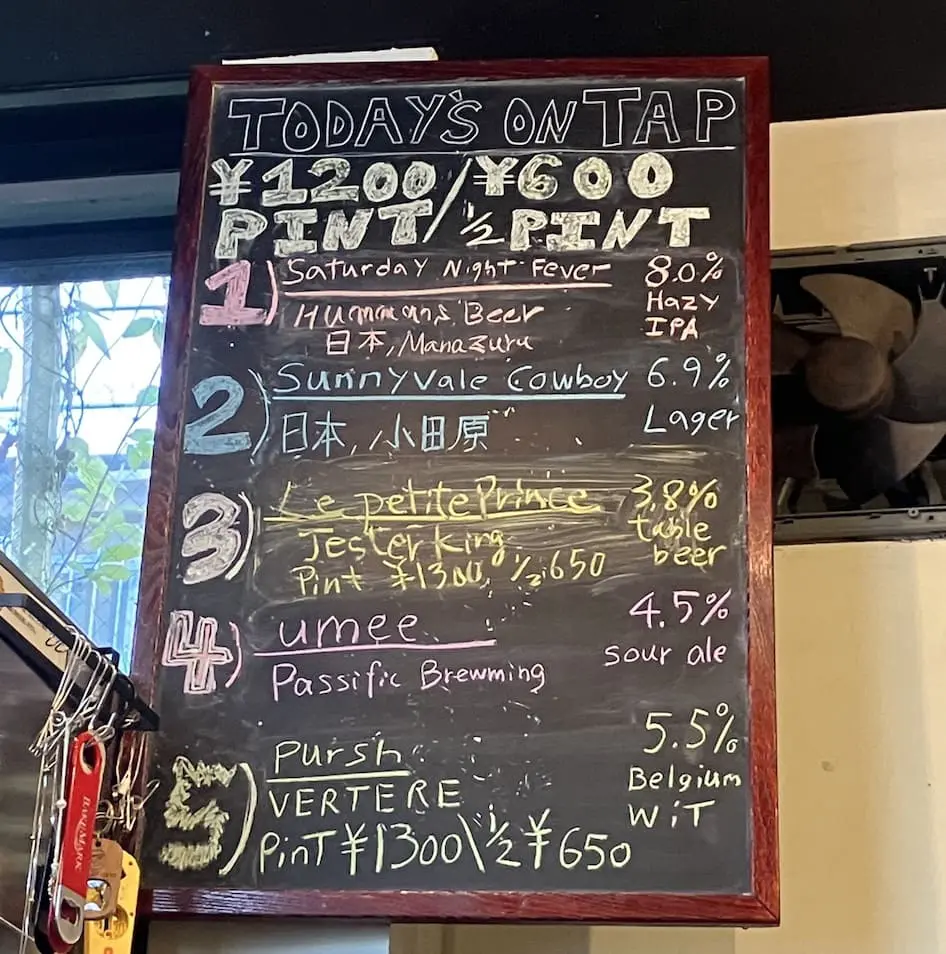 TODAY'S ON TAP
¥1200/¥600
PINT/½ PINT
1) Saturday Night Fever 8.0%
Hummans Beer Hazy
日本, Manazuru IPA
2) Sunnyvale Cowboy 6.9%
日本, 小田原 Lager
3) Le petite Prince 3.8%
Jester King table
Pint ¥1300, ½ 650 beer
4) umee 4.5%
Passific Brewming sour ale
5) Pursh 5.5%
VERTERE Belgium
PinT ¥1300\½ ¥650 WiT
BAR@MARK